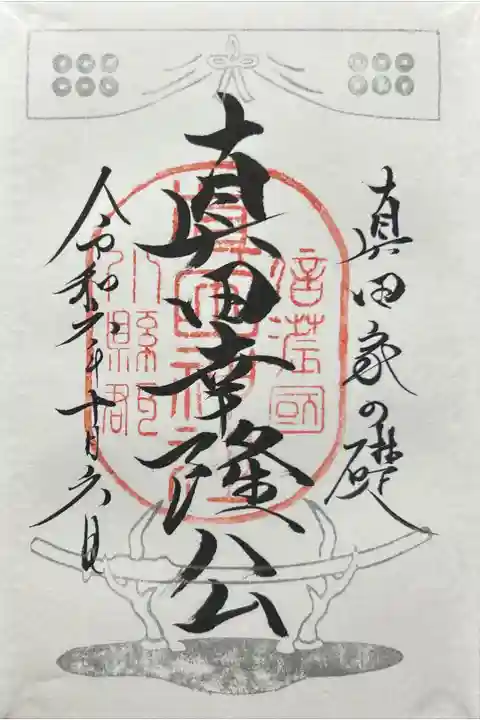 真田家の礎
真田幸隆公
令和六年十月六日
信濃國
眞田神社
小縣郡